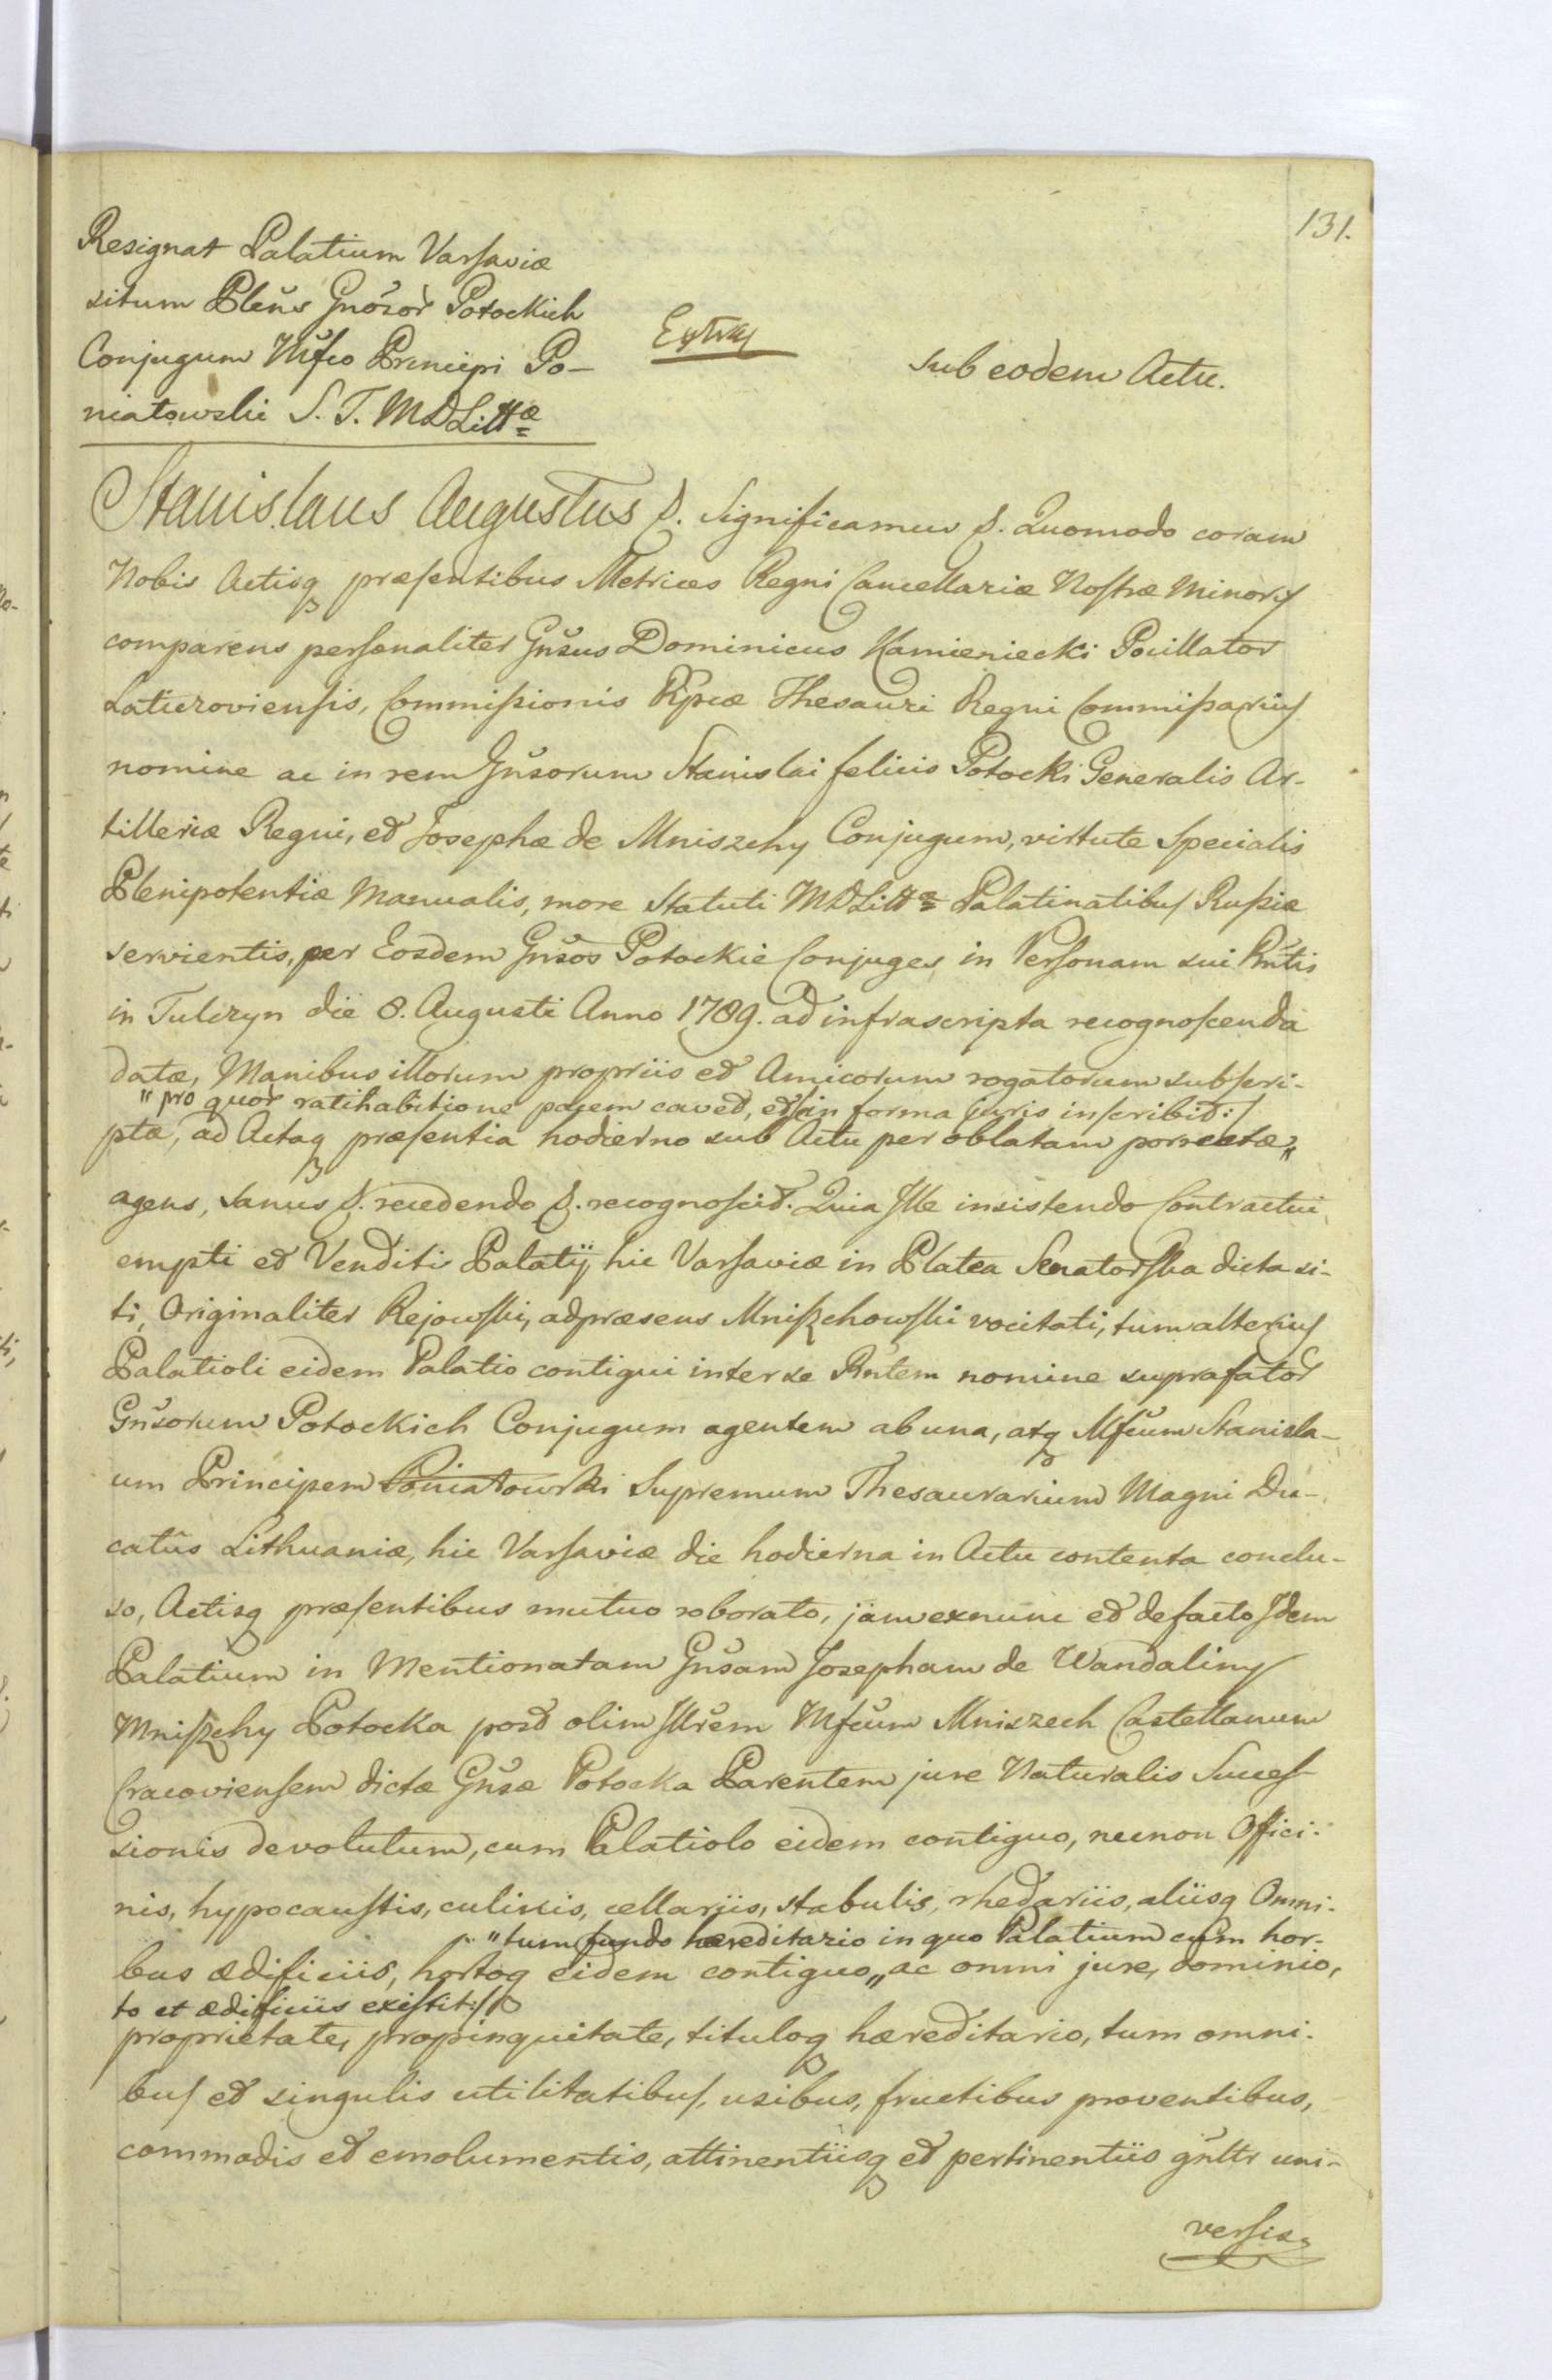 131.
Resignat Palatium Varsaviæ
situm Plen̆s Gnŏsor̀ Potockich
Conjugum Mfco Principi Po-
niatowski S. T. MDLittæ
Extra
sub eodem Actu.
Stanislaus Augustus &. Significamus &. Quomodo coram
Nobis Actisq præsentibus Metrices Regni Cancellariæ Nostræ Minoris
comparens personaliter Gn̆sus Dominicus Kamieniecki Pocillator
Laticzoviensis, Commissionis Rpcæ Thesauri Regni Commissarius
nomine ac in rem Gn̆sorum Stanislai felicis Potocki Generalis Ar-
tilleriæ Regni, et Josephæ de Mniszchy Conjugum, virtute Specialis
Plenipotentiæ Manualis, more Statuti MDLittæ Palatinatibus Russiæ
servientis, per Eosdem Gn̆sos Potockie Conjuges in Personam sui Rn̆tis
in Tulczyn die 8. Augusti Anno 1789. ad infrascripta recognoscenda
datæ, Manibus illorum propriis et Amicorum rogatorum subscri-
" pro quor̀ ratihabitione pacem cavet, et in forma juris inscribit :/
ptæ, ad Actaq præsentia hodierno sub Actu per oblatam porrectæ "
agens, sanus &. recedendo &. recognoscit. Quia Ille insistendo Contractui
empti et Venditi Palatij, hic Varsaviæ in Platea Senatorska dicta si-
ti, Originaliter Rejowski, adpræsens Mniszchowski vocitati, tum alterius
Palatioli eidem Palatio contigui inter se Rn̆tem nomine suprafator̀
Gn̆sorum Potockich Conjugum agentem ab una, atq Mfcum Stanisla-
um Principem Poniatowski Supremum Thesaurarium Magni Du-
catûs Lithuaniæ, hic Varsaviæ die hodierna in Actu contenta conclu-
so, Actisq præsentibus mutuo roborato, jam exnunc et defacto Idem
Palatium in Mentionatam Gn̆sam Josepham de Wandaliny
Mniszchy Potocka post olim Illrem Mfcum Mniszech Castellanum
Cracoviensem dictæ Gn̆sæ Potocka Parentem jure Naturalis Succes-
sionis devolutum, cum Palatiolo eidem contiguo, necnon Offici-
nis, hypocaustis, culinis, cellariis, stabulis, rhedariis, aliisq Omni-
/: " tum fundo hæreditario in quo Palatium cum hor-
bus ædificiis, hortoq eidem contiguo " ac omni jure, dominio,
to et ædificiis existit :/
proprietate, propinquitate, tituloq hæreditario, tum omni-
bus et singulis utilitatibus, usibus, fructibus proventibus,
commodis et emolumentis, attinentiisq et pertinentiis gn̆ltr uni-
versis,